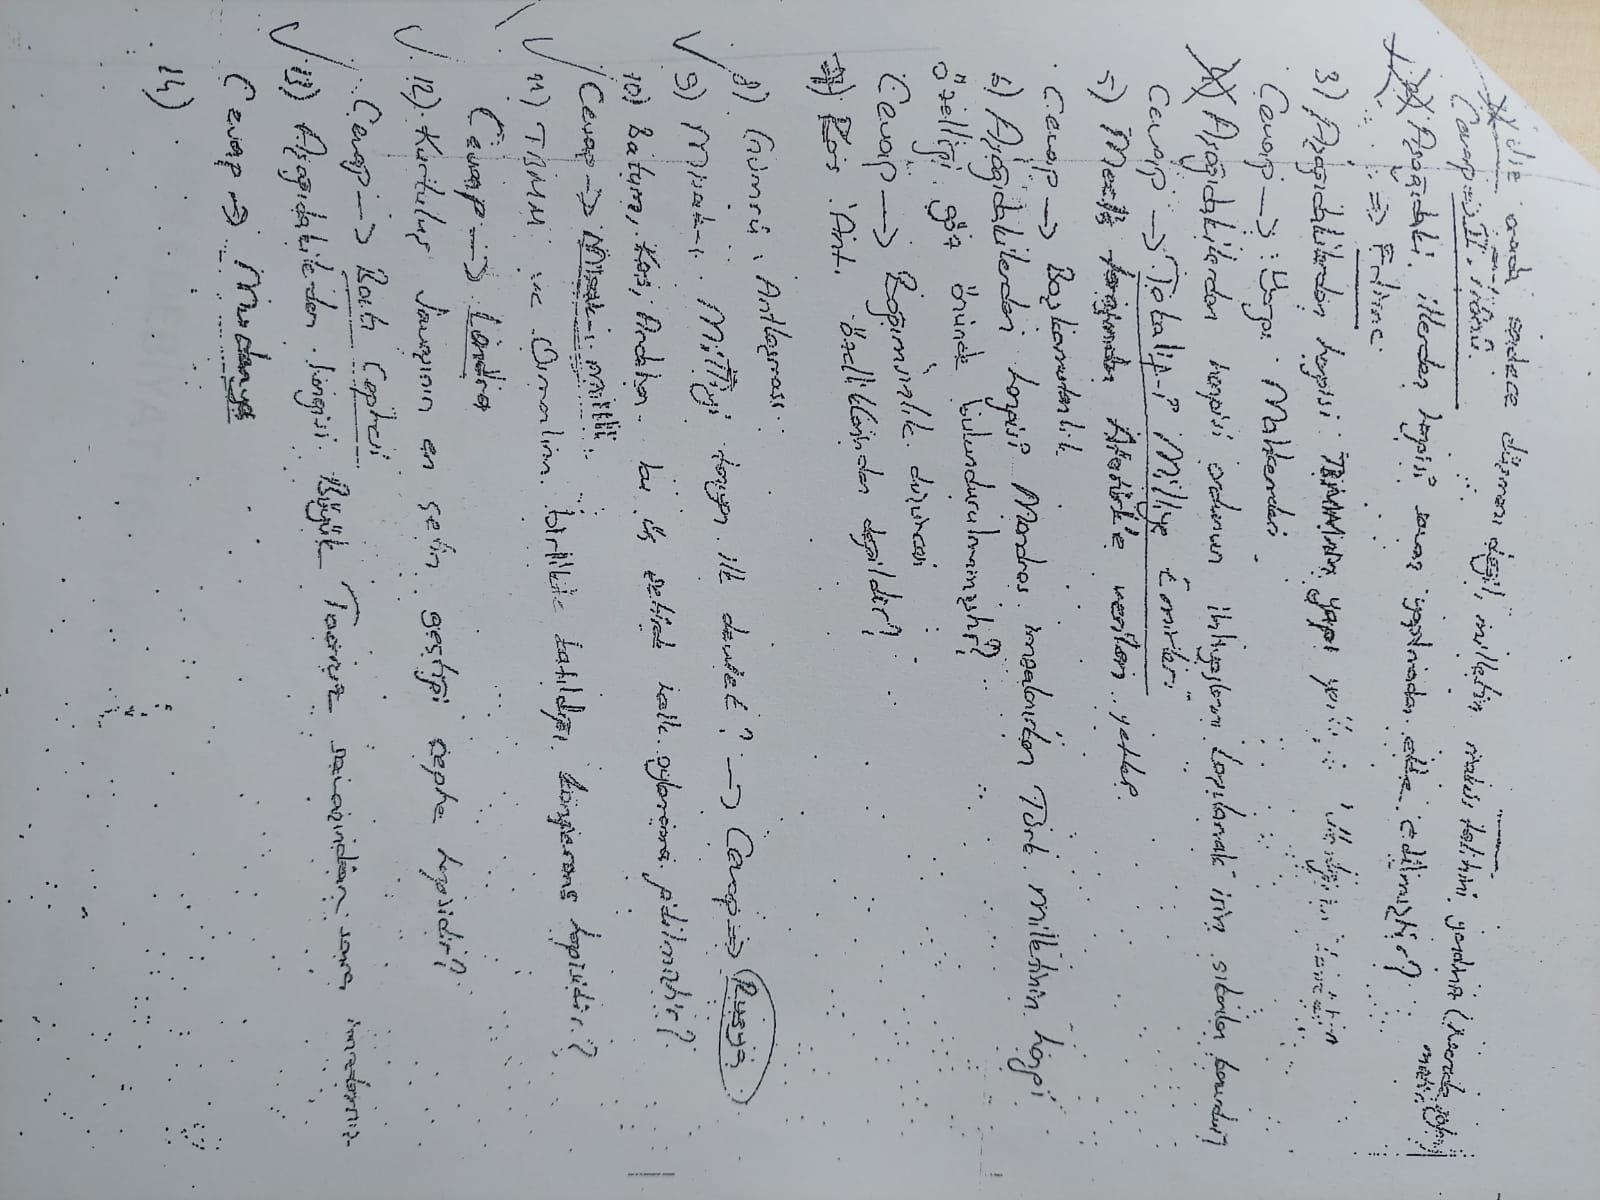 1) Siz orada sadece düşmanı değil, milletin makus talihini yendiniz (Nerede söylen
miştir.
Cevap → II. İnönü.
2) Aşağıdaki illerden hangisi savaş yapılmadan elde edilmiştir?
⇒ Edirne
3) Aşağıdakilerden hangisi TBMM'nin yapı
Cevap → Yargı Mahkemeleri
4) Aşağıdakilerden hangisi ordunun ihtiyaçlarını karşılamak için
Cevap → Tekalif-i Milliye Emirleri
5) Meclis tarafından Atatürk'e verilen yetki.
Cevap → Başkomutanlık
6) Aşağıdakilerden hangisi Mondros imzalanırken Türk Milletinin hangi
özelliği göz önünde bulundurulmamıştır?
Cevap → Bağımsızlık düşüncesi
7) Kars Ant. özelliklerinden değildir?
8) Gümrü Antlaşması.
9) Misak-ı Milliyi tanıyan ilk devlet? → Cevap ⇒ Rusya
10) Batum, Kars, Ardahan bu üç şehirde halk oylamasına gidilmiştir?
Cevap → Misak-ı milli
11) TBMM ve Osmanlının birlikte katıldığı konferans hangisidir?
Cevap → Londra
12) Kurtuluş Savaşının en çetin geçtiği cephe hangisidir?
Cevap → Batı Cephesi
13) Aşağıdakilerden hangisi Büyük Taarruz savaşından sonra
Cevap → Mudanya
14)